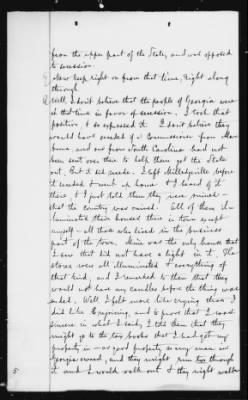 from the upper part of the State, and was opposed
to secession.
Now keep right on from that time, right along
through.
Well, I don't believe that the people of Georgia were
at that time in favor of secession. I took that
position & so expressed it. I don't believe they
would have seceded if a Commissioner from Ala-
bama, and one from South Carolina had not
been sent over there to help them get the State
out, but it did secede. I left Milledgeville before
it seceded & went up home & I heard of it
there & I just told them they were ruined -
that the country was ruined. All of them il-
luminated their houses there in town except
myself - all those who lived in the business
part of the town. Mine was the only house that
I saw that did not have a light in it. The
stores were all illuminated & everything of
that kind, and I remarked to them that they
would not have any candles before the thing was
ended. Well, I felt more like crying than I
did like rejoicing, and to prove that I was
sincere in what I said, I told them that they
might go to the tax books that I had got my
property in - as good property as any man in
Georgia owned, and they might run through
it and I would walk out & they might walk